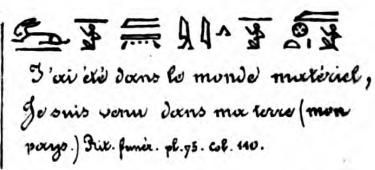 J'ai été dans le monde matériel,
Je suis venu dans ma terre (mon
pays.) Rit. funér. pl. 75. col. 110.